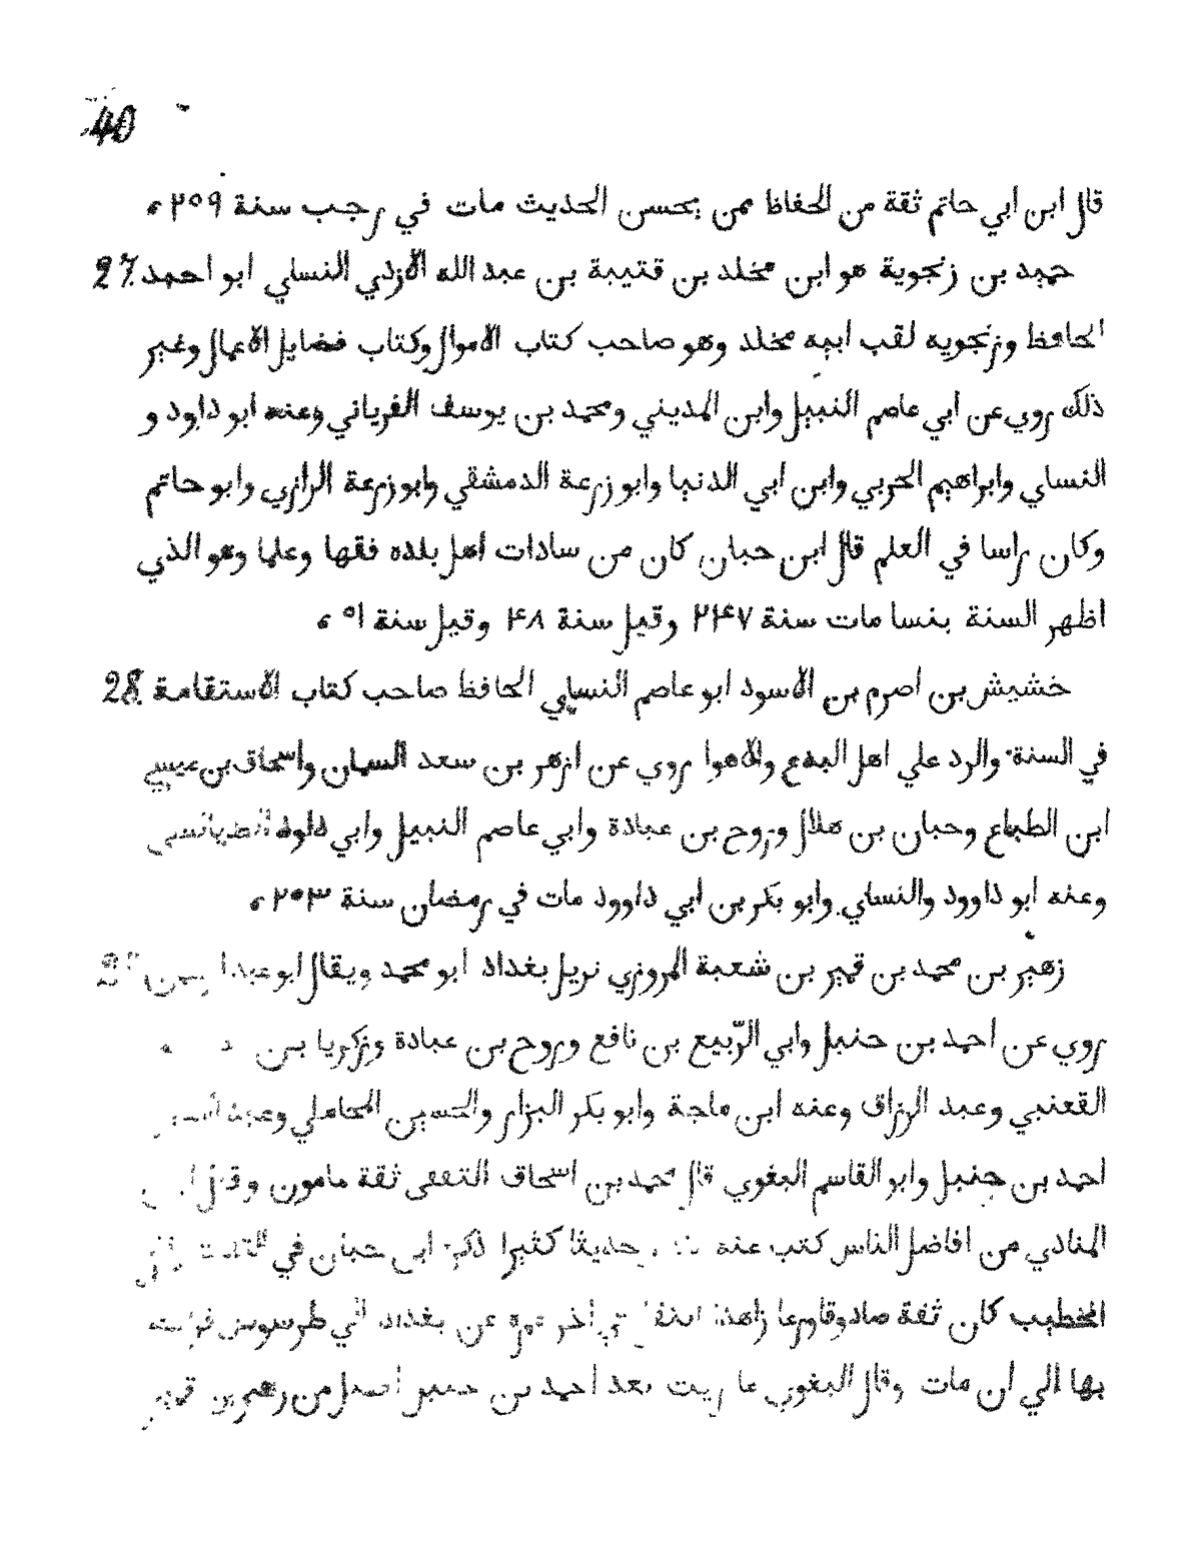 40
قال ابن ابي حاتم ثقة من الحفاظ ممن يحسن الحديث مات في رجب سنة ٢٥٩ ،
حميد بن زنجوية هو ابن مخلد بن قتيبة بن عبد الله الازدي النساي ابو احمد 27.
الحافظ وزنجويه لقب ابيه مخلد وهو صاحب كتاب الاموال وكتاب فضايل الاعمال وغير
ذلك روي عن ابي عاصم النبيل وابن المديني ومحمد بن يوسف الفرياني وعنه ابو داود و
النساي وابراهيم الحربي وابن ابي الدنيا وابو زرعة الدمشقي وابو زرعة الرازي وابو حاتم
وكان راسا في العلم قال ابن حبان كان من سادات اهل بلده فقها وعلما وهو الذي
اظهر السنة بنسا مات سنة ٢٤٧ وقيل سنة ٤٨ وقيل سنة ٥١ ،
خشيش بن اصرم بن الاسود ابو عاصم النساي الحافظ صاحب كتاب الاستقامة 28.
في السنة والرد علي اهل البدع والاهوا روي عن ازهر بن سعد السمان واسحاق بن عيسي
ابن الطباع وحبان بن هلال وروح بن عبادة وابي عاصم النبيل وابي داود الطيالسي
وعنه ابو داوود والنساي وابو بكر بن ابي داوود مات في رمضان سنة ٢٥٣ ،
زهير بن محمد بن قمير بن شعبة المروزي نزيل بغداد ابو محمد ويقال ابو عبد
روي عن احمد بن حنبل وابي الرّبيع بن نافع وروح بن عبادة وزكريا بن
القعنبي وعبد الرزاق وعنه ابن ماجة وابو بكر البزار والحسين المحاملي وعبد
احمد بن حنبل وابو القاسم البغوي قال محمد بن اسحاق الثقفي ثقة مامون وقال
المنادي من افاضل الناس كتب عنه حديثا كثيرا ذكره ابن حبان في
الخطيب كان ثقة صادوقا ورعا زاهدا اخر عمره عن بغداد الي طرسوس فرابط
بها الي ان مات وقال البغوي ما رايت بعد احمد بن حنبل افضل من زهير بن قمير